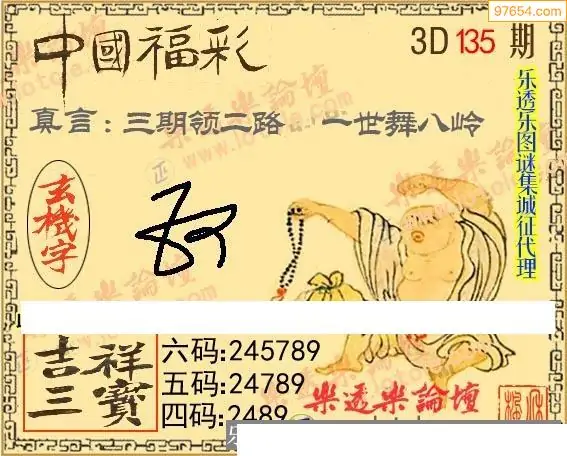 97654.com
中國福彩
3D 135 期
真言：三期领二路 一世舞八岭
乐透乐图谜集城征代理
玄機字
吉祥三寳
六码:245789
五码:24789
四码:2489
樂透樂論壇